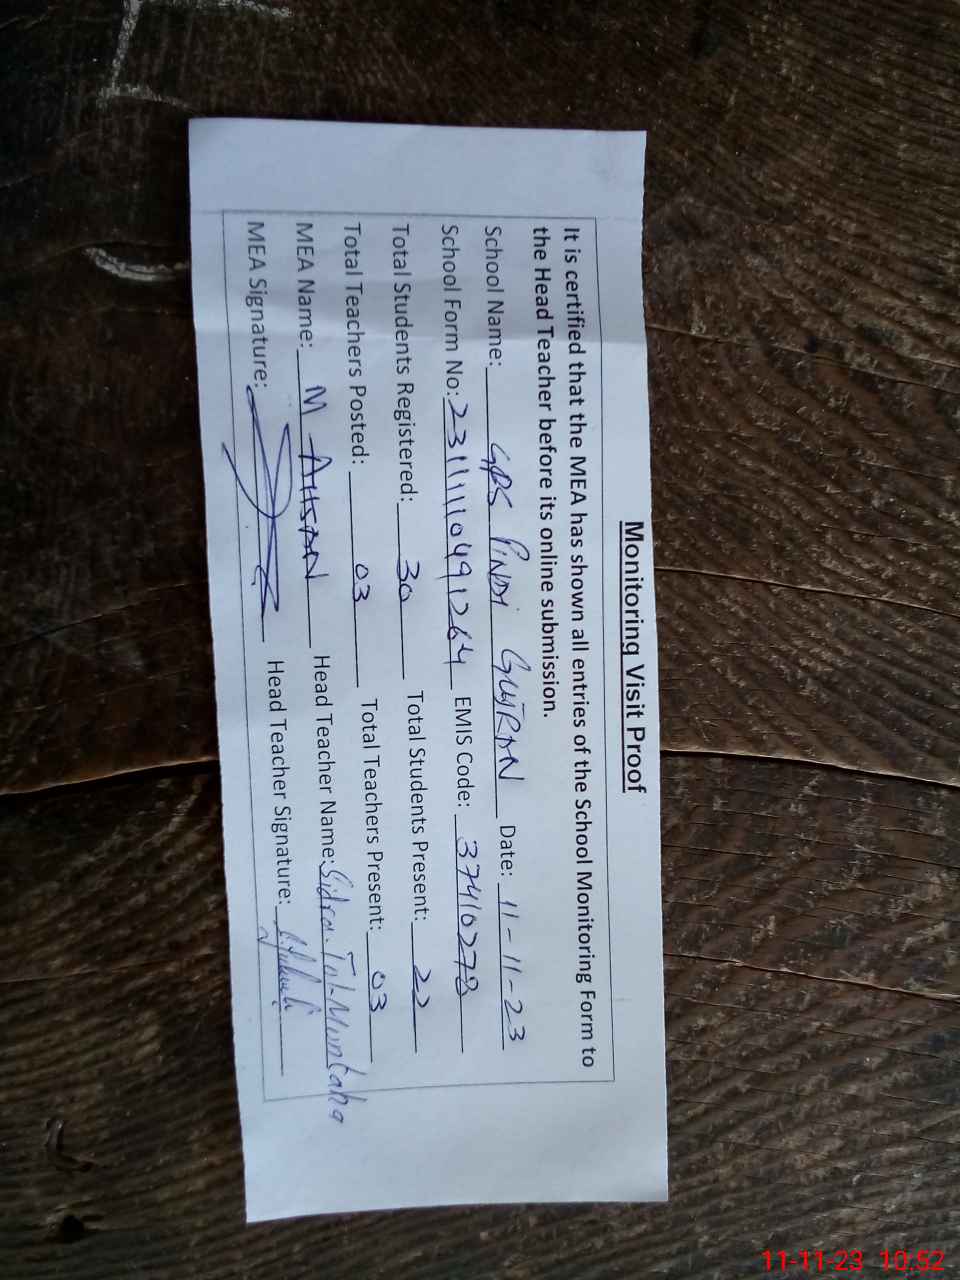 Monitoring Visit Proof
It is certified that the MEA has shown all entries of the School Monitoring Form to
the Head Teacher before its online submission.
School Name: GPS PINDI GUJRAN Date: 11-11-23
School Form No: 2311110491264 EMIS Code: 37410278
Total Students Registered: 30 Total Students Present: 22
Total Teachers Posted: 03 Total Teachers Present: 03
MEA Name: M AHSAN Head Teacher Name: Sidra-Tul-Muntaha
MEA Signature: Head Teacher Signature:
11-11-23 10:52